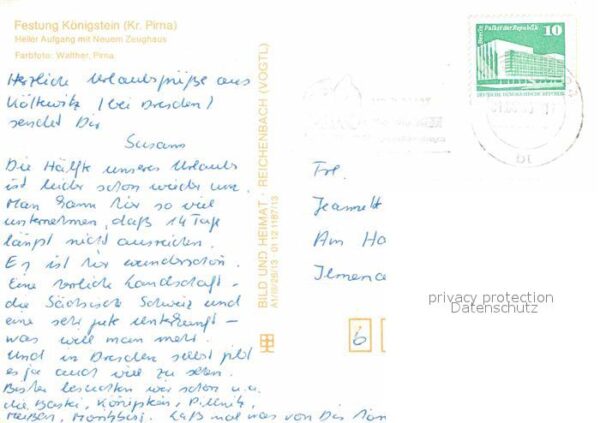 Festung Königstein (Kr. Pirna)
Heller Aufgang mit Neuem Zeughaus
Farbfoto: Walther, Pirna
Herzliche Urlaubsgrüße aus
(bei Dresden)
sendet Dir
Susann
Die Hälfte unseres Urlaubs
ist leider schon wieder um.
Man kann hier so viel
unternehmen, daß 14 Tage
längst nicht ausreichen.
Es ist hier wunderschön.
Eine herrliche Landschaft -
die Sächsische Schweiz und
eine sehr gute Unterkunft -
was will man mehr.
Und in Dresden selbst gibt
es ja auch viel zu sehen.
Bisher besuchten wir schon u.a.
die Bastei, Königstein, Pillnitz,
Meißen, Moritzburg. Laß mal was von Dir hören
BILD UND HEIMAT · REICHENBACH (VOGTL)
A1/III/26/13 01 12 1187/13
Berlin Palast der Republik
10
DEUTSCHE DEMOKRATISCHE REPUBLIK
Frl.
Am
Ilmena
6
privacy protection
Datenschutz